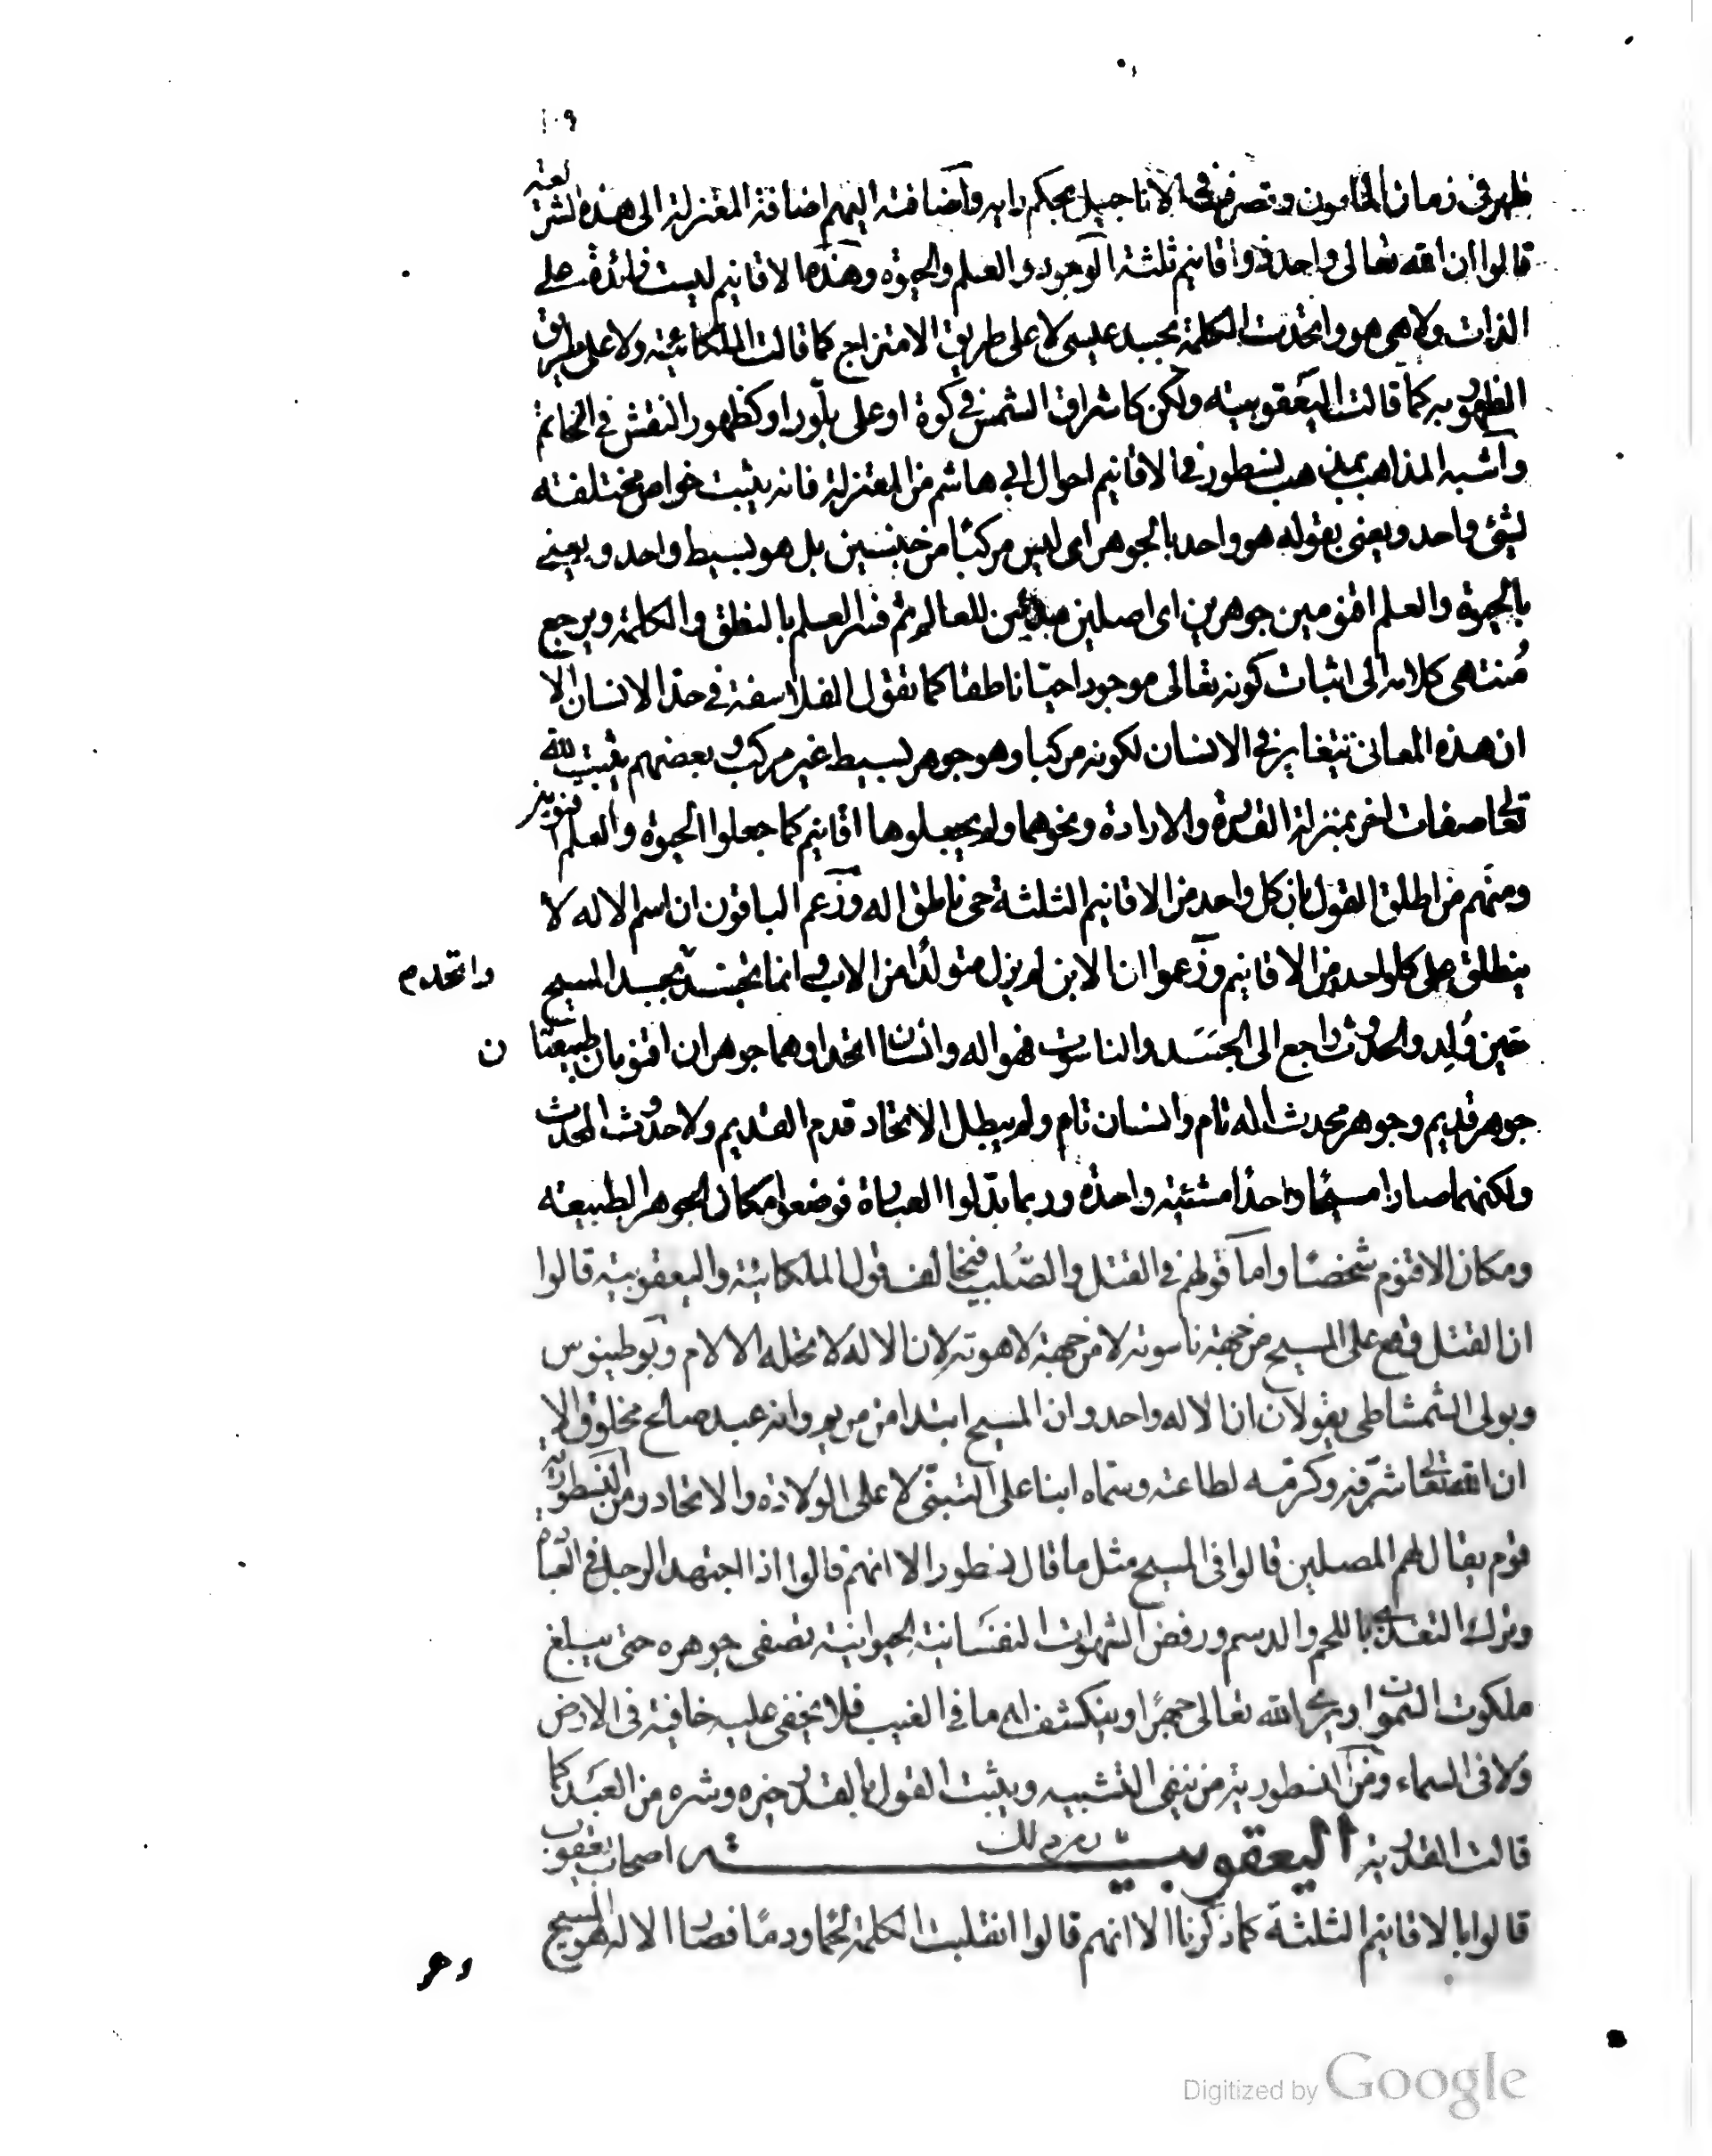 ١٠٩
ظهر فى زمان المامون وتصرف فى الاناجيل بحكم رايه واضافته اليهم اضافة المعتزلة الى هذه الشريعة
قالوا ان الله تعالى واحد ذو اقانيم ثلثة الوجود والعلم والحيوة وهذه الاقانيم ليست زائدة على
الذات ولا هى هو واتحدت الكلمة بجسد عيسى لا على طريق الامتزاج كما قالت الملكائية ولا على طريق
الظهور به كما قالت اليعقوبية ولكن كاشراق الشمس فى كوة او على بلور او كظهور النقش فى الخاتم
واشبه المذاهب بمذهب نسطور فى الاقانيم احوال ابى هاشم من المعتزلة فانه يثبت خواص مختلفة
لشئ واحد ويعنى بقوله هو واحد بالجوهر اى ليس مركبا من جنسين بل هو بسيط واحد ويعنى
بالحيوة والعلم اقنومين جوهرين اى اصلين مبدئين للعالم ثم فسر العلم بالنطق والكلمة ويرجع
منتهى كلامه الى اثبات كونه تعالى موجودا حيا ناطقا كما تقول الفلاسفة فى حد الانسان الا
ان هذه المعانى تتغاير فى الانسان لكونه مركبا وهو جوهر بسيط غير مركب وبعضهم يثبت لله
تعالى صفات اخر بمنزلة القدرة والارادة ونحوهما ولم يجعلوها اقانيم كما جعلوا الحيوة والعلم اقنومين
ومنهم من اطلق القول بان كل واحد من الاقانيم الثلثة حى ناطق اله وزعم الباقون ان اسم الاله لا
ينطلق على كل واحد من الاقانيم وزعموا ان الابن لم يزل متولدا من الاب وانما تجسد بجسد المسيح
واتحد م
حين ولد والحدوث راجع الى الجسد والناسوت فهو اله وانسان اتحدا وهما جوهران اقنومان طبيعتا
ن
جوهر قديم وجوهر محدث اله تام وانسان تام ولم يبطل الاتحاد قدم القديم ولا حدوث المحدث
ولكنهما صارا مسيحا واحدا مشئية واحدة وربما بدلوا العبارة فوضعوا مكان الجوهر الطبيعة
ومكان الاقنوم شخصا واما قولهم فى القتل والصلب فيخالف قول الملكائية واليعقوبية قالوا
ان القتل وقع على المسيح من جهة ناسوته لا من جهة لاهوته لان الاله لا تحله الالام وبوطينوس
وبولى الشمشاطى يقولان ان الاله واحد وان المسيح ابتدا من مريم وانه عبد صالح مخلوق الا
ان الله تعالى شرفه وكرمه لطاعته وسماه ابنا على التبنى لا على الولادة والاتحاد ومن النسطورية
قوم يقال لهم المصلين قالوا فى المسيح مثل ما قال نسطور الا انهم قالوا اذا اجتهد الرجل فى العبادة
وترك التغذى باللحم والدسم ورفض الشهوات النفسانية الحيوانية تصفى جوهره حتى يبلغ
ملكوت السموات ويرى الله تعالى جهرا وينكشف له ما فى الغيب فلا يخفى عليه خافية فى الارض
ولا فى السماء ومن النسطورية من ينفى التشبيه ويثبت القول بالقدر خيره وشره من العبد كما
قالت القدرية اليعقوبية اصحاب يعقوب
قالوا بالاقانيم الثلثة كما ذكرنا الا انهم قالوا انقلبت الكلمة لحما ودما فصار الاله هو المسيح
وهو
Digitized by Google